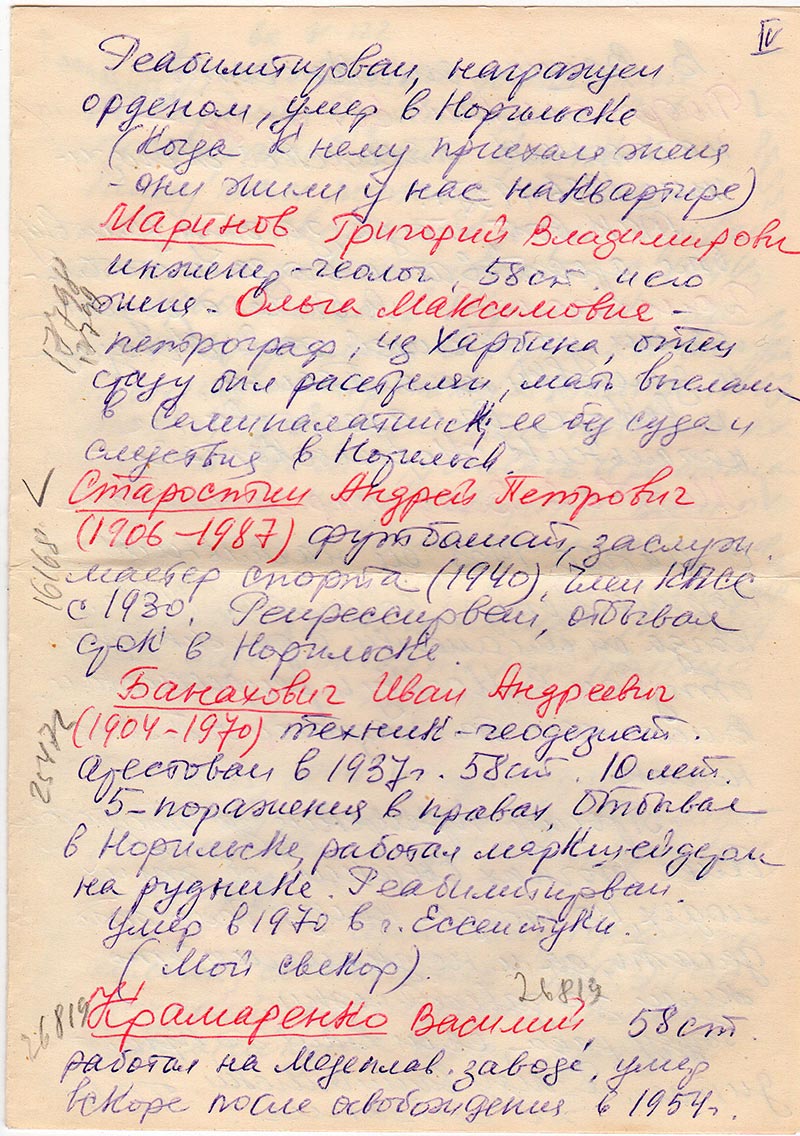 IV
Реабилитирован, награжден
орденом, умер в Норильске
(Когда к нему приехала жена
- они жили у нас на квартире)
Маринов Григорий Владимирови
инженер-геолог, 58 ст. и его
жена - Ольга Максимовна -
петрограф, из Харбина, отец
сразу был расстрелян, мать выслали
в Семипалатинск, ее без суда и
следствия в Норильск.
Старостин Андрей Петрович
(1906-1987) футболист, заслужен.
мастер спорта (1940), член КПСС
с 1930. Репрессирован, отбывал
срок в Норильске.
Банахович Иван Андреевич
(1904-1970) техник-геодезист.
Арестован в 1937г. 58 ст. 10 лет.
5 - поражения в правах, Отбывал
в Норильске, работал маркшейдером
на руднике. Реабилитирован.
Умер в 1970 в г. Ессентуки.
(Мой свекор).
26819
Крамаренко Василий, 58 ст.
работал на Медеплав. заводе, умер
вскоре после освобождения в 1954г.
17798
17799
16168
25472
26819